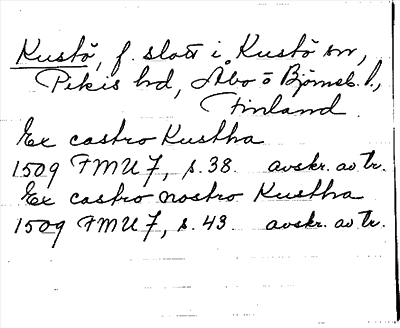 Kustö, f. slott i Kustö sn,
Pikis hd, Åbo o Björneb. l.,
Finland
Ex castro Kustha
1509 FMU 7, s. 38. avskr. av tr.
Ex castro nostro Kustha
1509 FMU 7, s. 43. avskr. av tr.